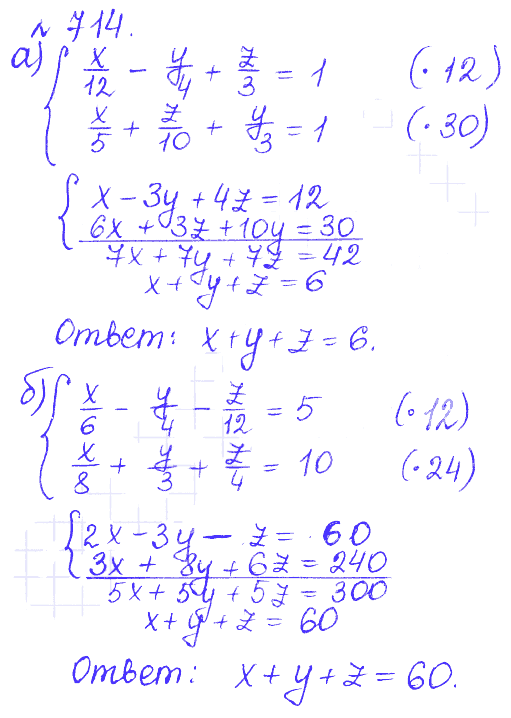 № 714.
а) { x/12 − y/4 + z/3 = 1 (·12)
x/5 + z/10 + y/3 = 1 (·30)
{ x − 3y + 4z = 12
6x + 3z + 10y = 30
7x + 7y + 7z = 42
x + y + z = 6
Ответ: x + y + z = 6.
б) { x/6 − y/4 − z/12 = 5 (·12)
x/8 + y/3 + z/4 = 10 (·24)
{ 2x − 3y − z = 60
3x + 8y + 6z = 240
5x + 5y + 5z = 300
x + y + z = 60
Ответ: x + y + z = 60.